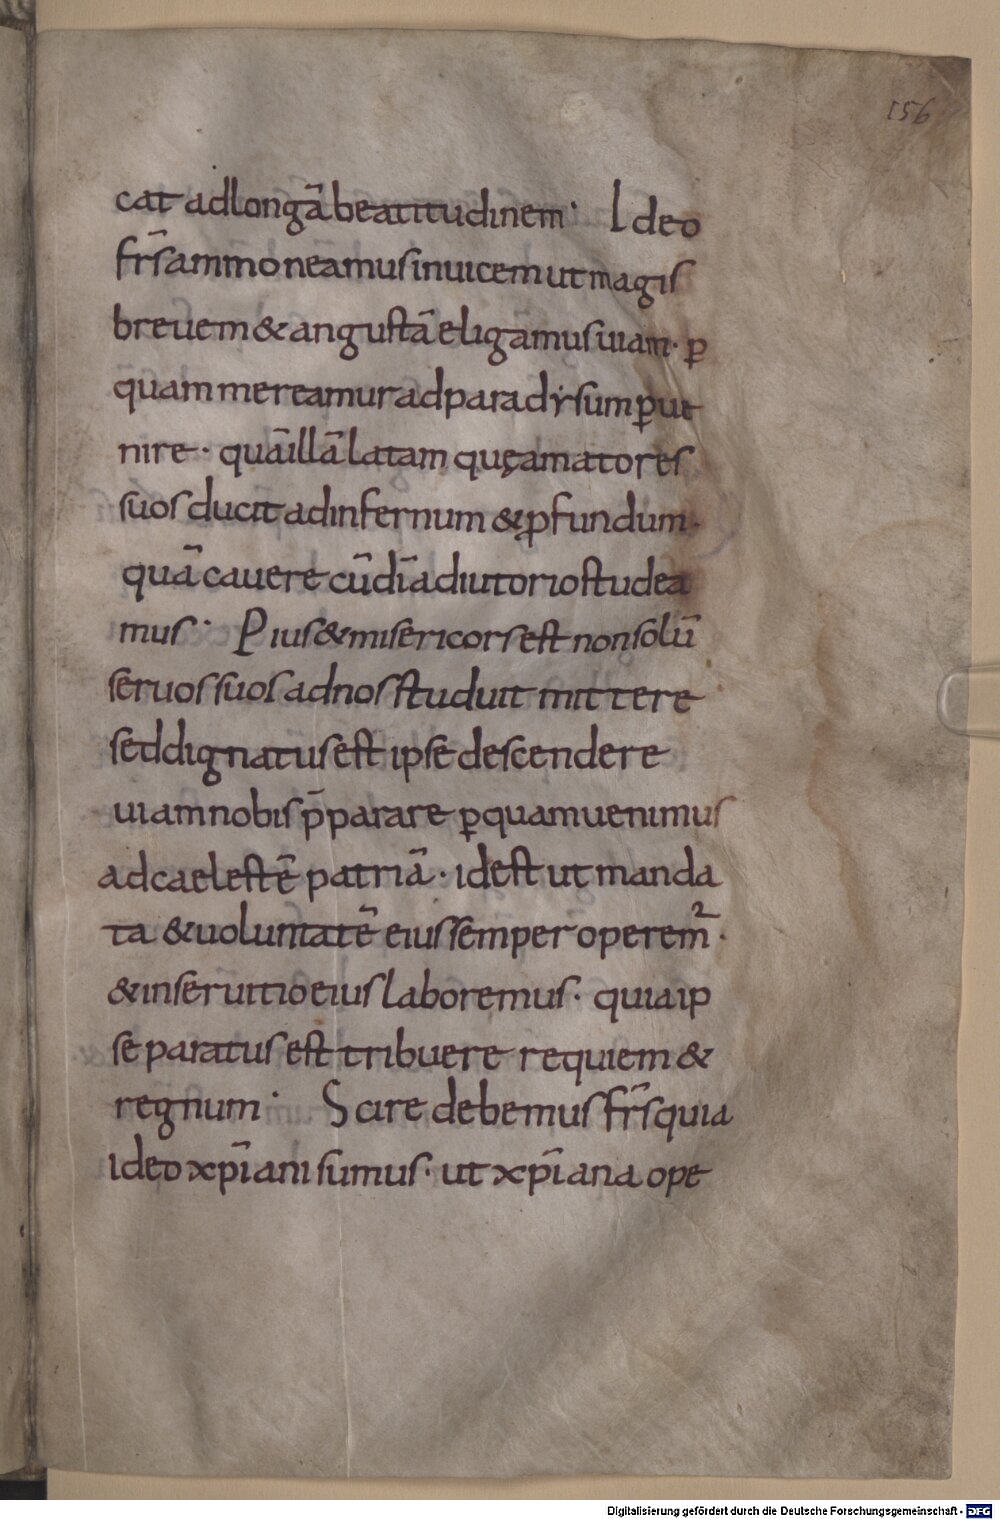 156
cat adlongā beatitudinem· Ideo
fr̄s ammoneamus inuicem ut magis
breuem & angustā eligamus uiam· ꝑ
quam mereamur ad paradysum ꝑue
nire· quā illā latam quę amatores
suos ducit ad infernum & ꝓfundum·
quā cauere cū dī adiutorio studea
mus· Pius & misericors est non solū
seruos suos ad nos studuit mittere
sed dignatus est ipse descendere
uiam nobis p̄parare ꝑ quam uenimus
ad caelestē patriā· id est ut manda
ta & uoluntatē eius semper operem̄²·
& in seruitio eius laboremus· quia ip
se paratus est tribuere requiem &
regnum· Scire debemus fr̄s quia
ideo xp̄iani sumus· ut xp̄iana ope
Digitalisierung gefördert durch die Deutsche Forschungsgemeinschaft - DFG